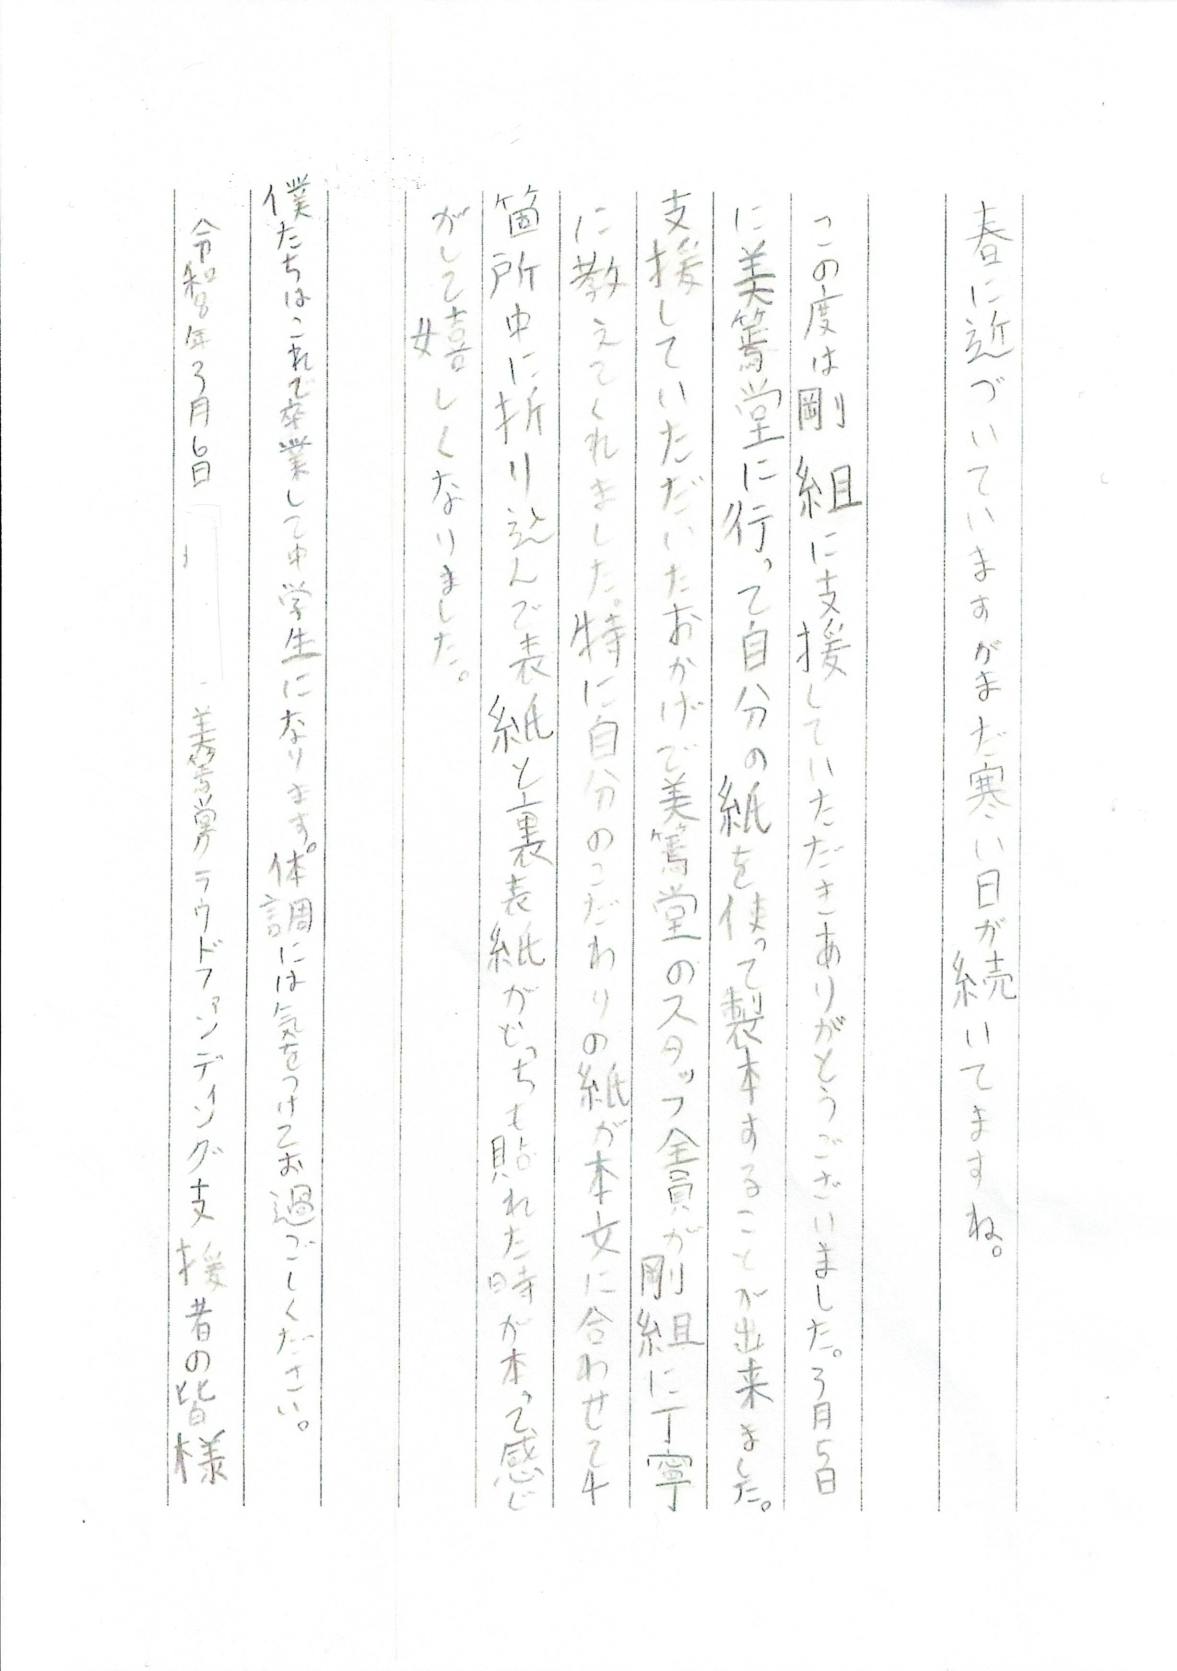 春に近づいていますがまだ寒い日が続いてますね。
この度は剛組に支援していただきありがとうございました。3月5日
に美篶堂に行って自分の紙を使って製本することが出来ました。
支援していただいたおかげで美篶堂のスタッフ全員が剛組に丁寧
に教えてくれました。特に自分のこだわりの紙が本文に合わせて4
箇所中に折り込んで表紙と裏表紙がどっちも貼れた時が本って感じ
がして嬉しくなりました。
僕たちはこれで卒業して中学生になります。体調には気をつけてお過ごしください。
令和8年3月6日 美篶堂クラウドファンディング支援者の皆様